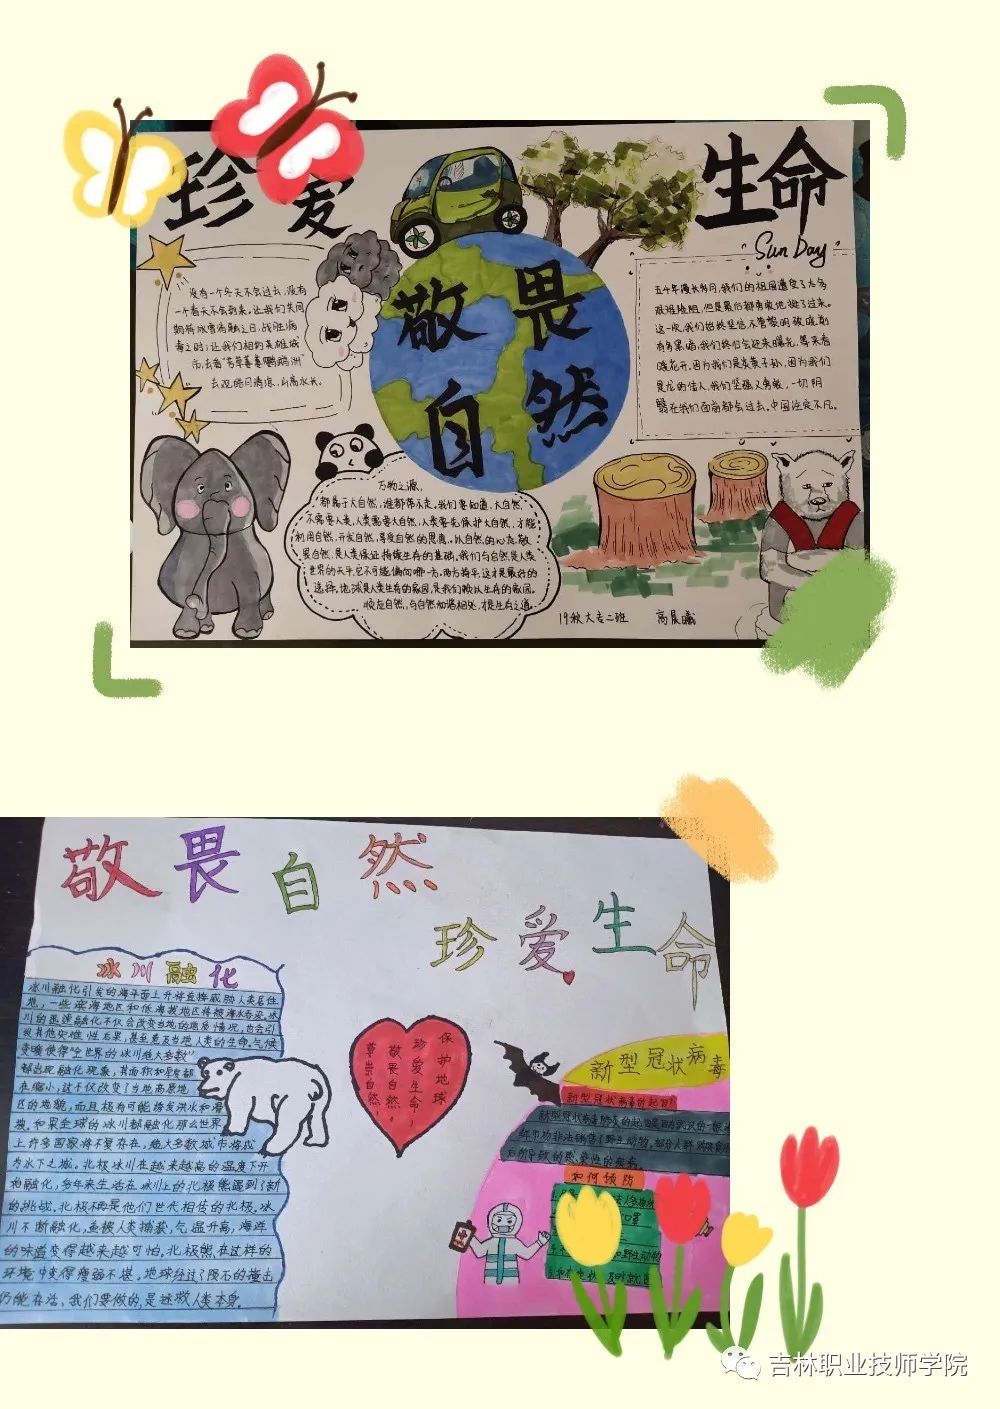 珍爱
生命
Sun Day
敬畏
自然
没有一个冬天不会过去,没有
一个春天不会到来。让我们共同
期待冰雪消融之日,战胜病
毒之时;让我们相约英雄城
后,去看"芳草萋萋鹦鹉洲"
去观皓月清凉、山高水长。
五千年漫长岁月,我们的祖国遭受了太多
艰难险阻,但是最后都勇敢地挺了过来。
这一次,我们始终坚信,不管
有多黑暗,我们终归会迎来曙光,等来春
暖花开。因为我们是炎黄子孙,因为我们
是龙的传人,我们坚强又勇敢,一切阴
翳在我们面前都会过去。中国注定不凡。
万物之源,
都属于大自然,谁都带不走。我们要知道,大自然,
不需要人类,人类需要大自然,人类要先保护大自然,才能
利用自然,开发自然,尊重自然的恩惠。以自然的心态,敬
畏自然,是人类保证持续生存的基础。我们与自然是人类
世界的天平,它不可能偏向哪一方,两方持平,这才是最好的
选择。地球是人类生存的家园,是我们赖以生存的家园。
顺应自然,与自然和谐相处,才是生存之道
19秋大专二班 高晨曦
敬畏自然
珍爱生命
冰川融化
冰川融化引发的海平面上升将直接威胁人类居住
地,一些滨海地区和低海拔地区将被海水吞没。冰
川的迅速融化不仅会改变当地的地质情况,也会引
发其他灾难性后果,甚至危及当地人类的生命。气候
变暖使得"全世界的冰川绝大多数"
都出现融化现象,其面积和厚度都
在缩小,这不仅改变了当地高原地
区的地貌,而且极有可能诱发洪水和滑
坡。如果全球的冰川都融化那么世界
上许多国家将不复存在,绝大多数城市将成
为水下之城。北极冰川在越来越高的温度下开
始融化,多年来生活在冰川上的北极熊遇到了新
的挑战。北极不再是他们世代相传的北极。冰
川不断融化,鱼被人类捕获,气温升高,海洋
的味道变得越来越可怕。北极熊在这样的
环境中变得瘦弱不堪。地球经过了陨石的撞击
仍能存活、我们要做的,是拯救人类本身。
保护地球
珍爱生命,
敬畏自然,
尊崇自然,
新型冠状病毒
新型冠状病毒的起因
新型冠状病毒肺炎的起因是因为武汉的一家
市场非法销售了野生动物,部分人群
后所导致的感染性的疾病。
如何预防
口罩
和野生动物
吉林职业技师学院